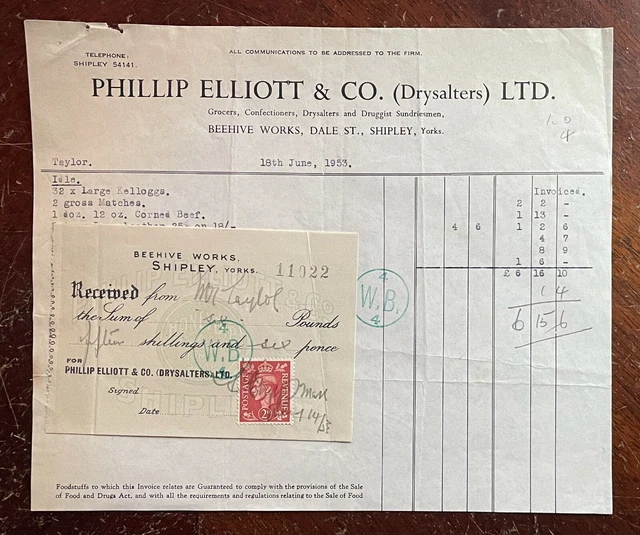 TELEPHONE:
SHIPLEY 54141.
ALL COMMUNICATIONS TO BE ADDRESSED TO THE FIRM.
PHILLIP ELLIOTT & CO. (Drysalters) LTD.
Grocers, Confectioners, Drysalters and Druggist Sundriesmen,
BEEHIVE WORKS, DALE ST., SHIPLEY, Yorks.
4
Taylor. 18th June, 1953.
Idle. Invoices.
32 x Large Kelloggs. 2 2 -
2 gross Matches. 2 2 -
1 doz. 12 oz. Corned Beef. 1 13 -
25% on 18/- 4 6 1 2 6
4 7
8 9
1 6 -
£ 6 16 10
1 4
6 15 6
4
W.B.
4
BEEHIVE WORKS,
SHIPLEY, YORKS. 11022
Received from Mr Taylor
the Sum of six Pounds
fifteen shillings and six pence
4
W.B.
4
FOR
PHILLIP ELLIOTT & CO. (DRYSALTERS) LTD.
POSTAGE REVENUE
Signed
Date
Foodstuffs to which this Invoice relates are Guaranteed to comply with the provisions of the Sale
of Food and Drugs Act, and with all the requirements and regulations relating to the Sale of Food